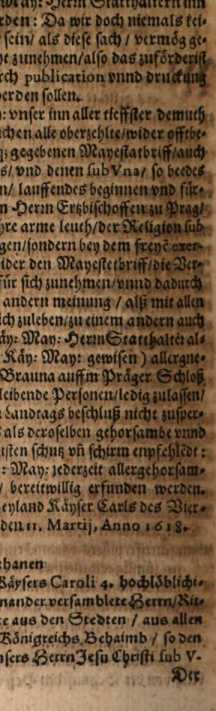 May: Herrn Statthaltern inn
rden: Da wir doch niemals kei-
sein/ als diese sach/ vermög ge-
t zunehmen/ also das zuförderist
rch publication vnnd druckung
erden sollen.
: vnser inn aller tieffster demuth
chen alle oberzehlte/ wider offtbe-
q; gegebenen Mayestatbriff/ auch
s/ vnd denen sub Vna/ so beedes
n/ lauffendes beginnen vnd für-
n Herrn Ertzbischoffen zu Prag/
re arme leuth/ der Religion sub
gen/ sondern bey dem freyē exer-
ider den Mayestetbriff/ die Ver-
für sich zunehmen/ vnnd dadurch
andern meinung/ alß mit allen
ch zuleben/ zu einem andern auch
äy: May: Herrn Statthalter al-
Käy: May: gewisen) allergne-
Brauna auffm Präger Schloß
leibende Personen/ ledig zulassen/
Landtags beschluß nicht zusper-
als deroselben gehorsambe vnnd
isten schutz vñ schirm enpfehlēdt:
: May: jederzeit allergehorsam-
/ bereitwillig erfunden werden.
eyland Käyser Carls des Vier-
den 11. Martij, Anno 1618.
thanen
Käysers Caroli 4. hochlöblicht-
nander versamblete Herrn/ Rit-
te aus den Stedten/ aus allen
Königreichs Behaimb/ so den
nsers Herrn Jesu Christi sub V-
Der